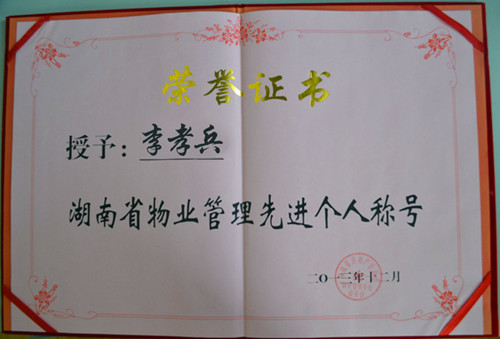 荣誉证书
授予：李孝兵
湖南省物业管理先进个人称号
二〇一三年十二月